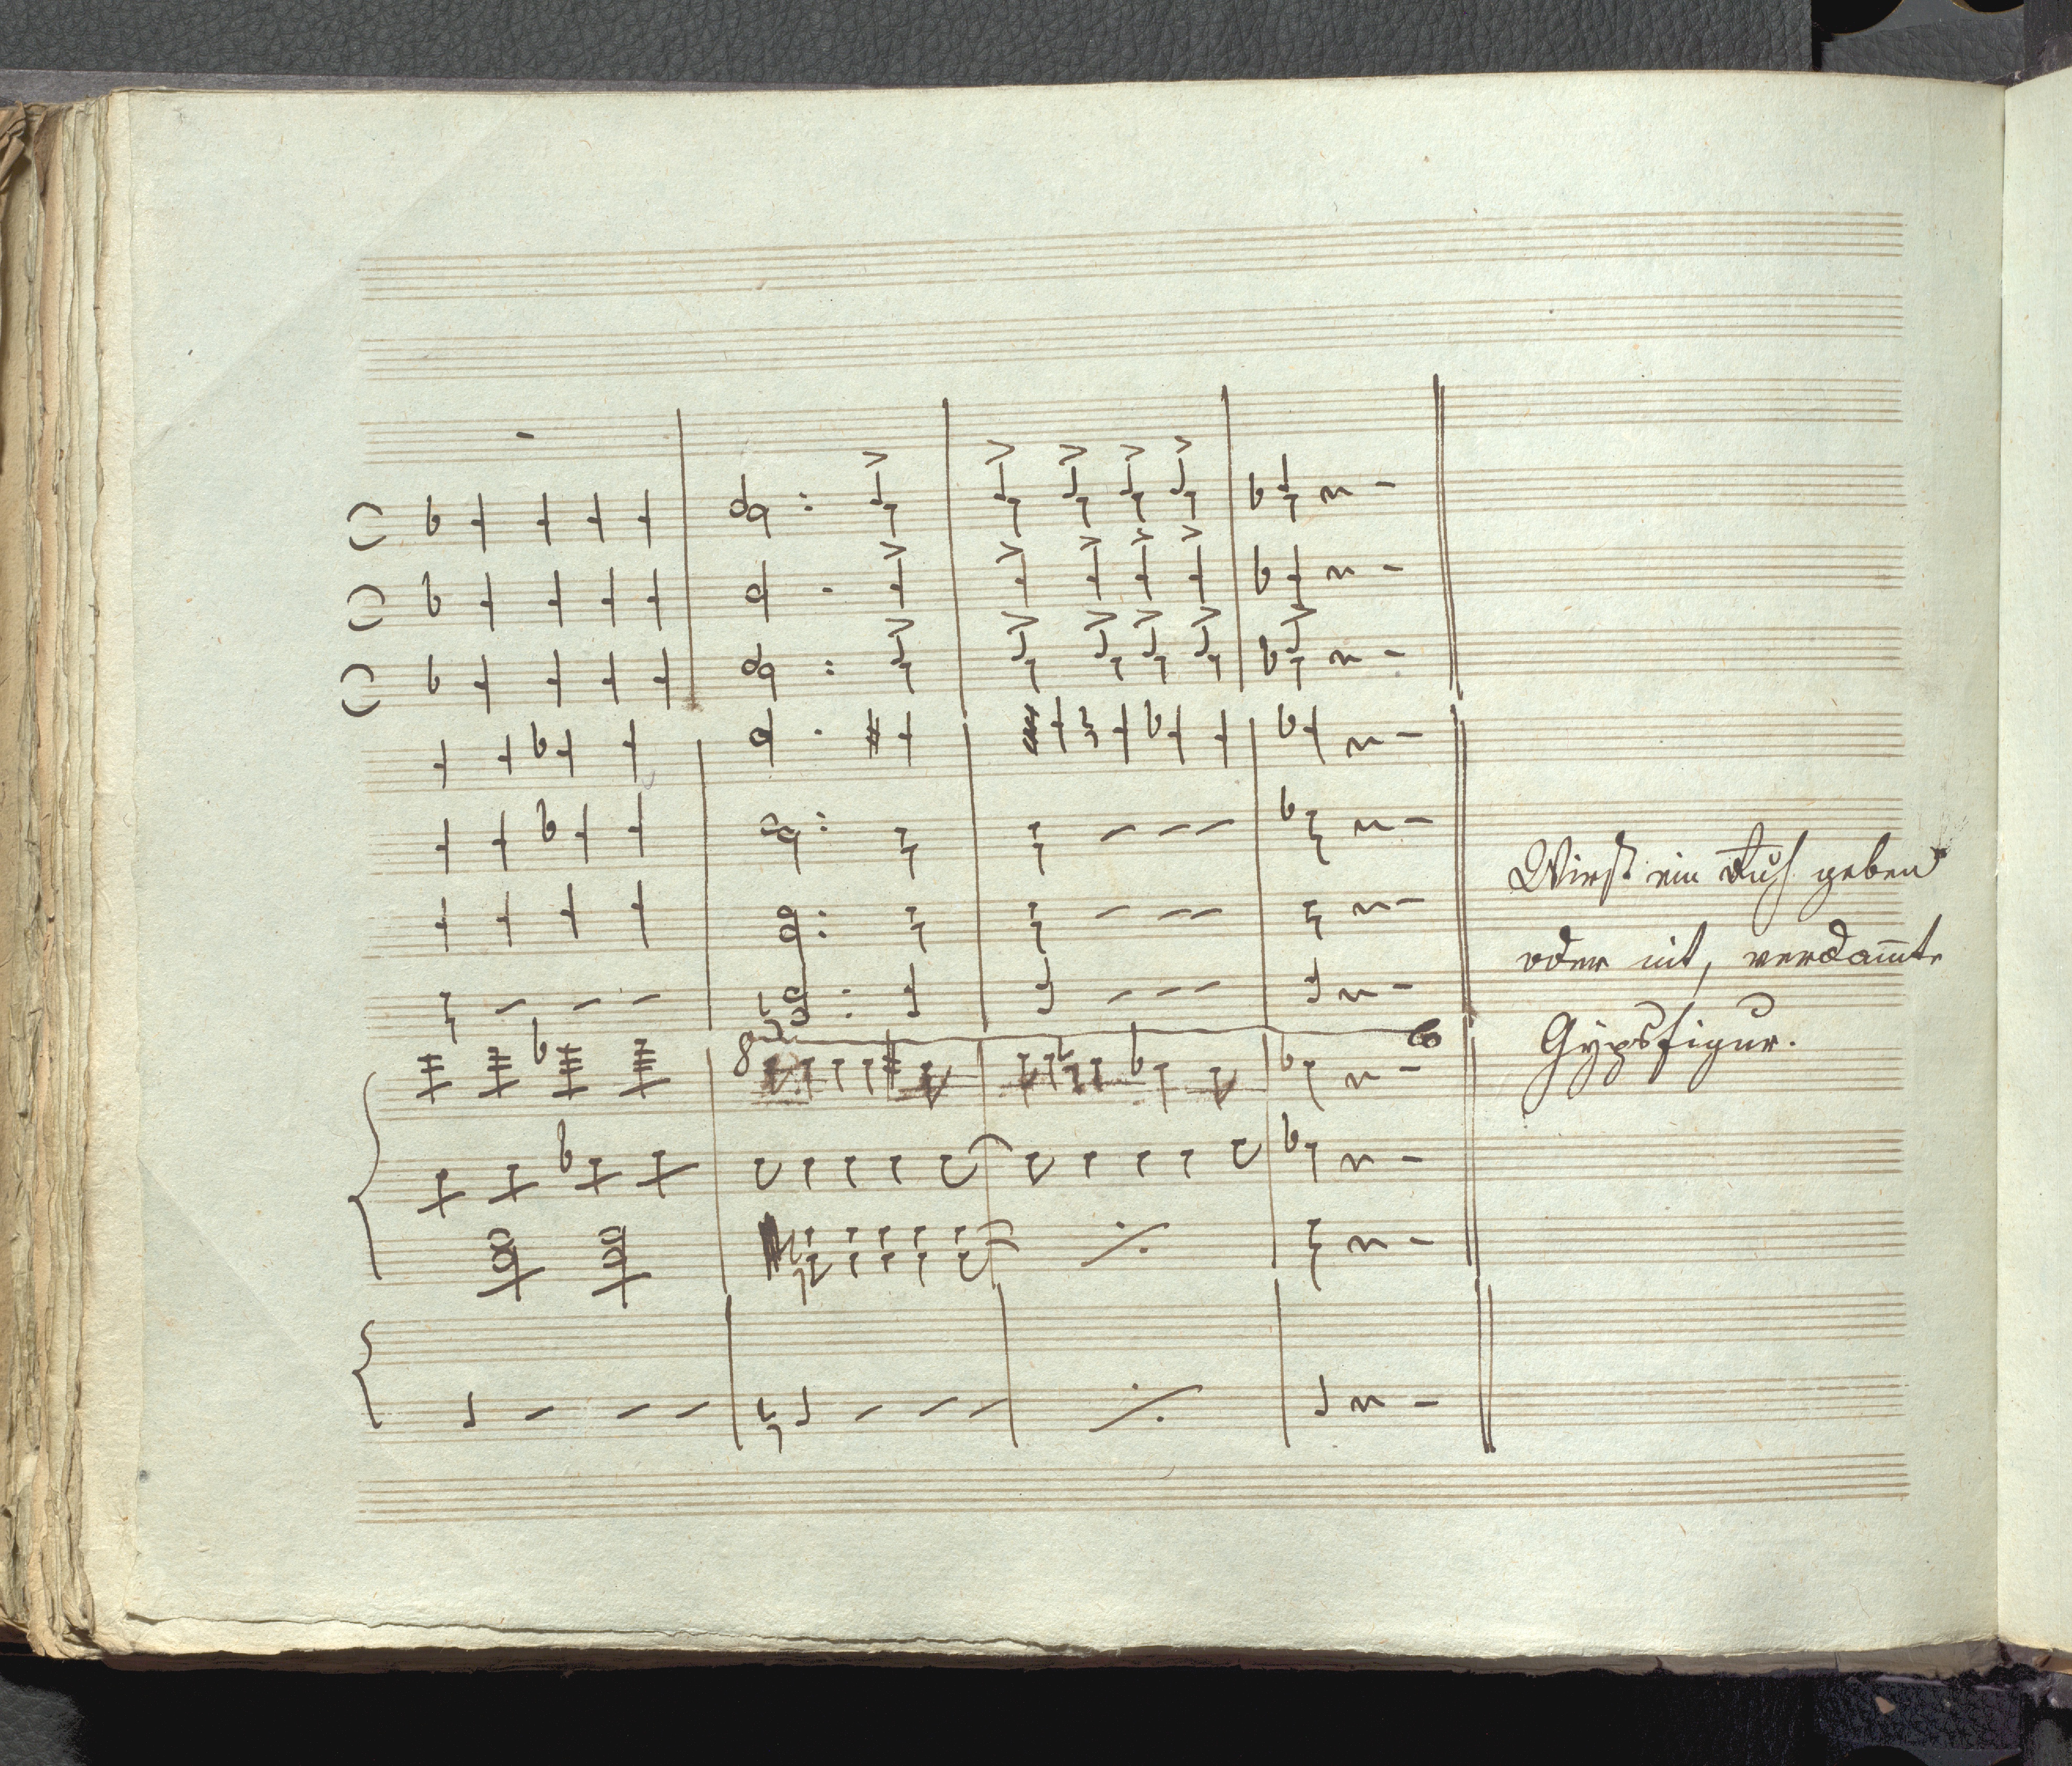 8
Wirst ein Ruh geben
oder nit, verdam̅te
Gypsfigur.